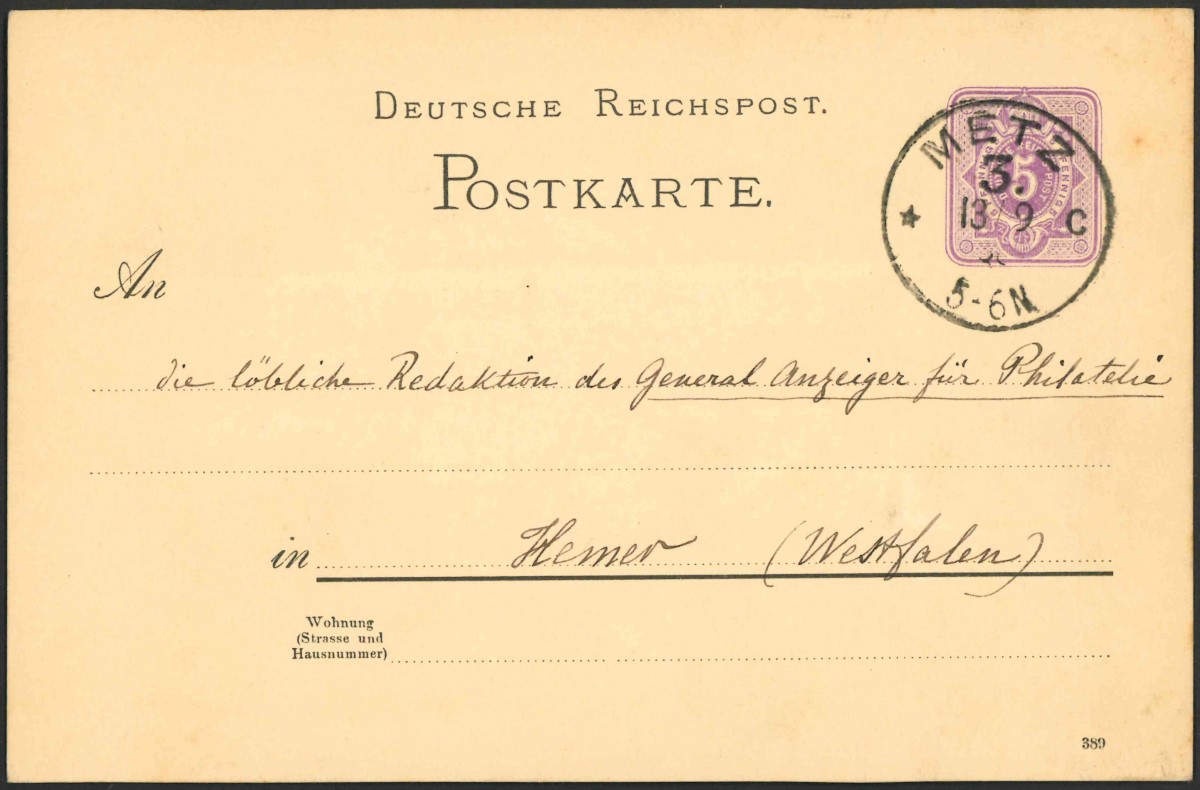 DEUTSCHE REICHSPOST.
POSTKARTE.
METZ
3.
5
13 9 C
5-6N
An
die löbliche Redaktion des General Anzeiger für Philatelie
in Hemer (Westfalen)
Wohnung
(Strasse und
Hausnummer)
389